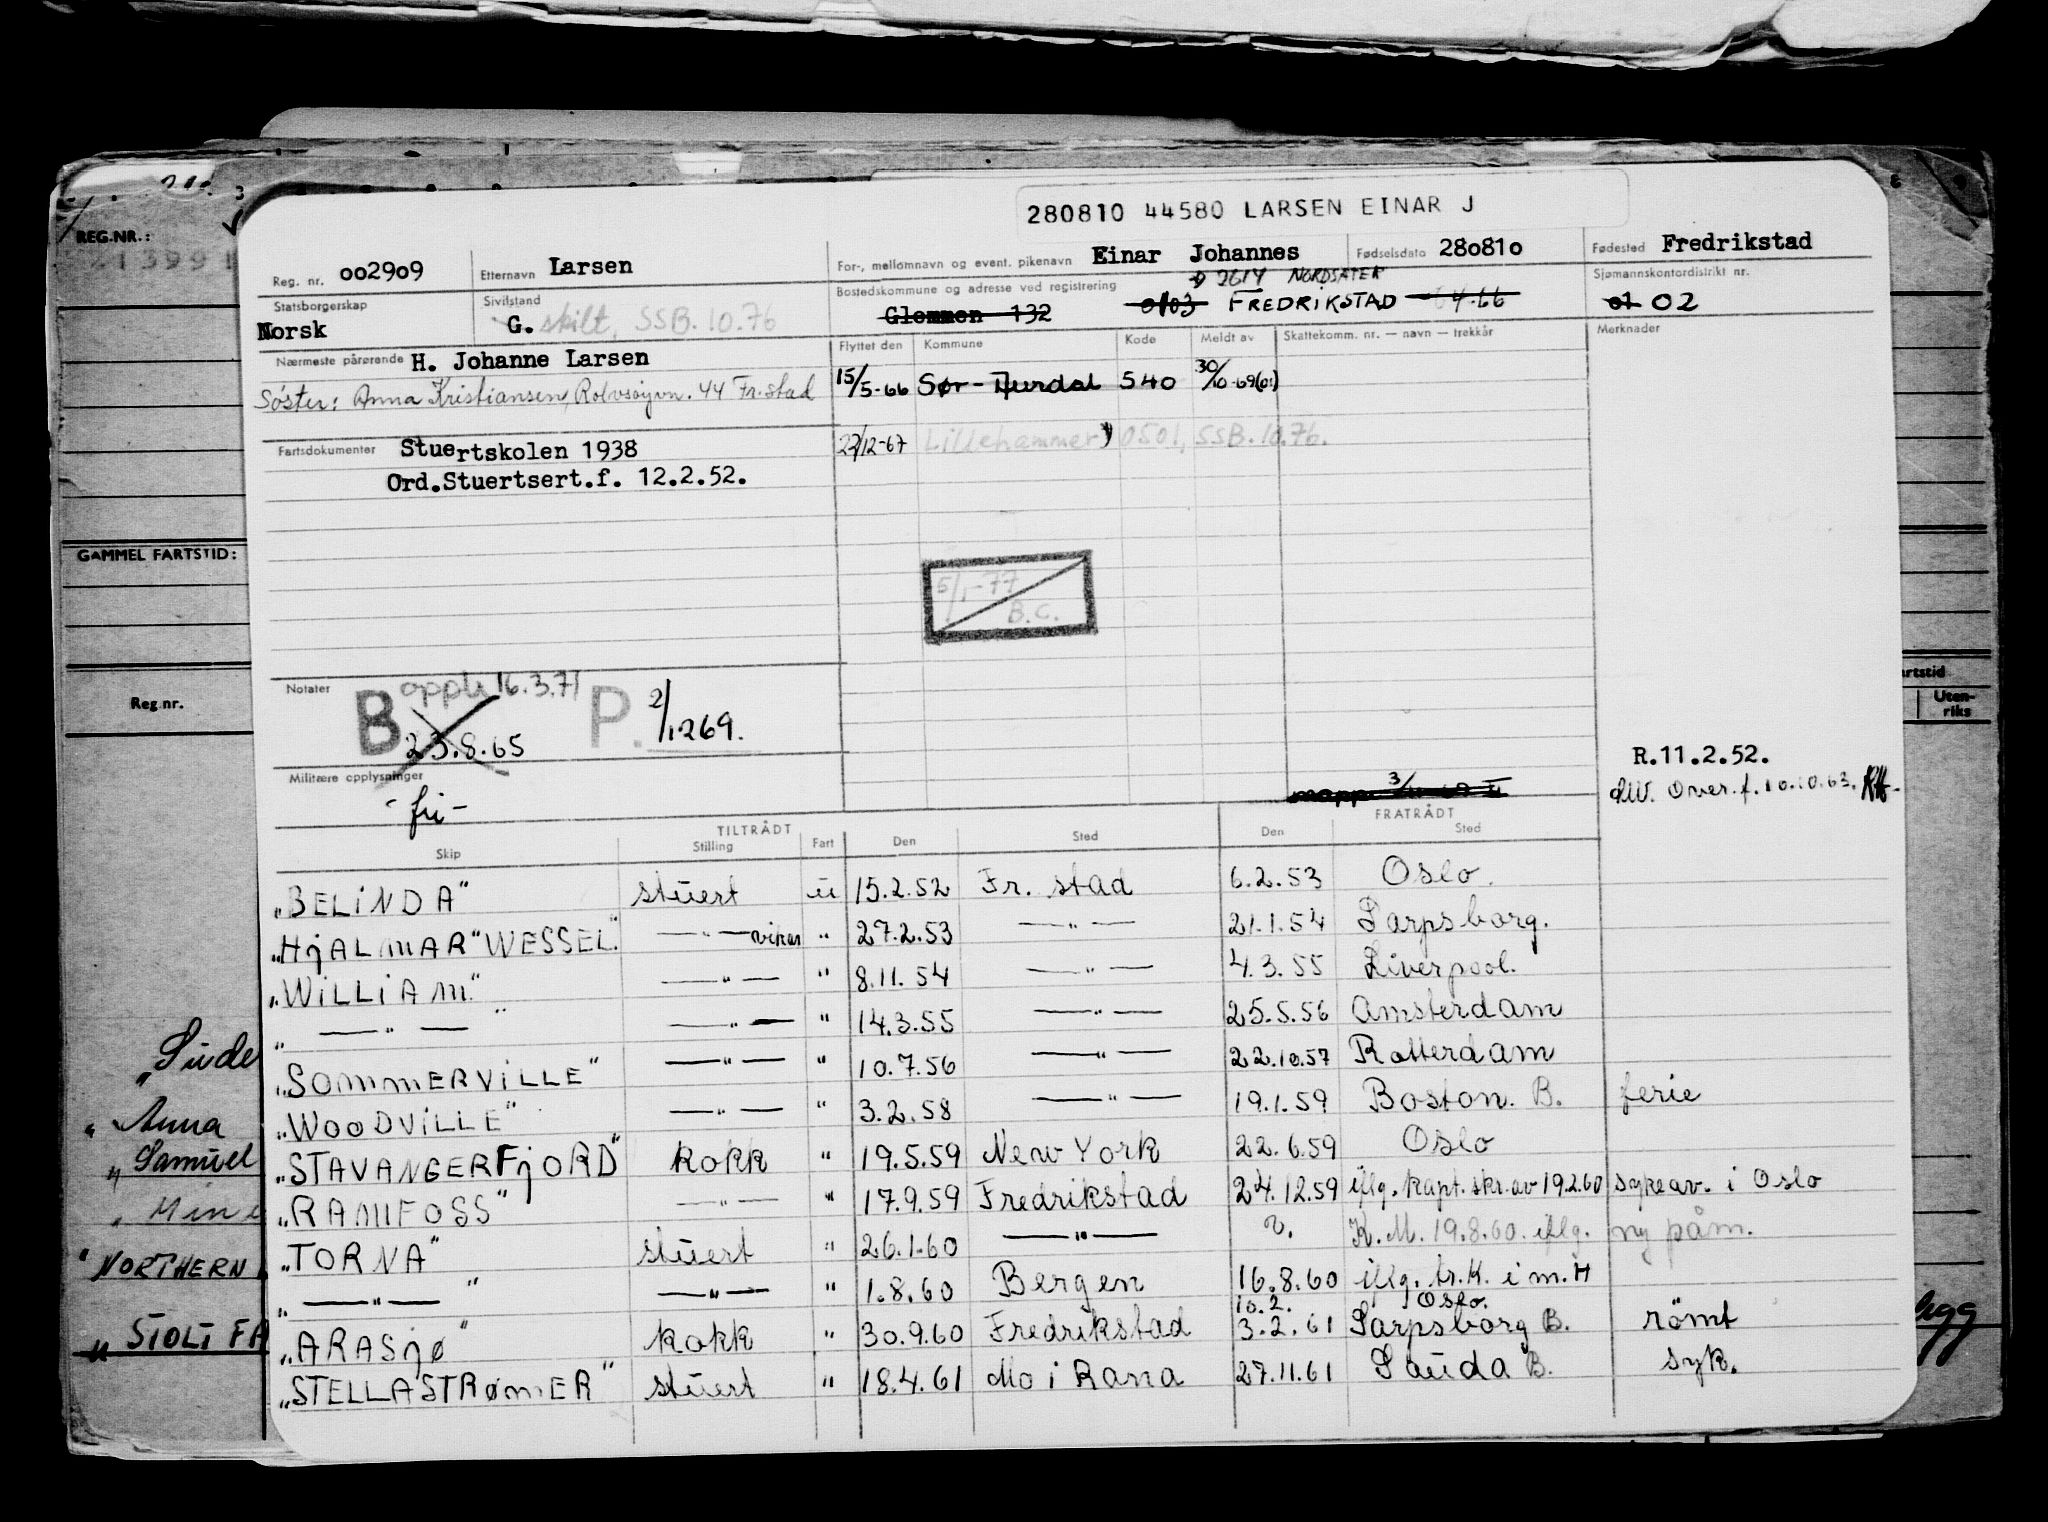 280810 44580 LARSEN EINAR J
REG.NR.:
Reg. nr. 002909 Etternavn Larsen For-, mellomnavn og event. pikenavn Einar Johannes Fødselsdato 280810 Fødested Fredrikstad
Statsborgerskap Norsk Sivilstand G. skilt, SSB. 10.76 Bostedskommune og adresse ved registrering 2614 NORDSÆTER Sjømannskontordistrikt nr.
Glemmen 132 0103 FREDRIKSTAD 4-66 01 02
Nærmeste pårørende H. Johanne Larsen Flyttet den Kommune Kode Meldt av Skattekomm. nr. — navn — trekkår Merknader
Søster: Anna Kristiansen, Rolvsøyvn. 44 Fr.stad 15/5-66 Sør-Aurdal 540 30/10-69(01)
Fartsdokumenter Stuertskolen 1938 22/12-67 Lillehammer 0501, SSB. 10.76.
Ord.Stuertsert.f. 12.2.52.
GAMMEL FARTSTID:
5/1-77
B.C.
Notater B oppl. 16.3.71 P. 2/1269.
23.8.65
Reg.nr.
artstid
Uten-
riks
R.11.2.52.
Militære opplysninger
- fri -
mapp. 3/
Over.f. 10.10.63.
TILTRÅDT FRATRÅDT
Skip Stilling Fart Den Sted Den Sted
"BELINDA" stuert u 15.2.52 Fr. stad 6.2.53 Oslo.
"HjALMAR" WESSEL." —"— vikar " 27.2.53 —"— 21.1.54 Sarpsborg.
"WiLLiAM." —"— " 8.11.54 —"— 4.3.55 Liverpool.
" —"— " —"— " 14.3.55 —"— 25.5.56 Amsterdam
"SOMMERViLLE" —"— " 10.7.56 —"— 22.10.57 Rotterdam
"WOODViLLE" —"— " 3.2.58 —"— 19.1.59 Boston. B. ferie
"STAVANGERFjORD" kokk " 19.5.59 New York 22.6.59 Oslo
"RAMFOSS" —"— " 17.9.59 Fredrikstad 24.12.59 iflg. kapt. skr. av 19.2.60 sykeav. i Oslo
"TORNA" stuert " 26.1.60 —"— ?. K.M. 19.8.60. iflg. ny påm.
" —"— " —"— " 1.8.60 Bergen 16.8.60 iflg. tr.K. i m.H
10.2. Oslo.
"ARASjØ" kokk " 30.9.60 Fredrikstad 3.2.61 Sarpsborg B. rømt
"STELLASTRØMER" stuert " 18.4.61 Mo i Rana 27.11.61 Sauda B. syk.
"Sude
" Anna
" Samuel
"NORTHERN
" STOLT FA